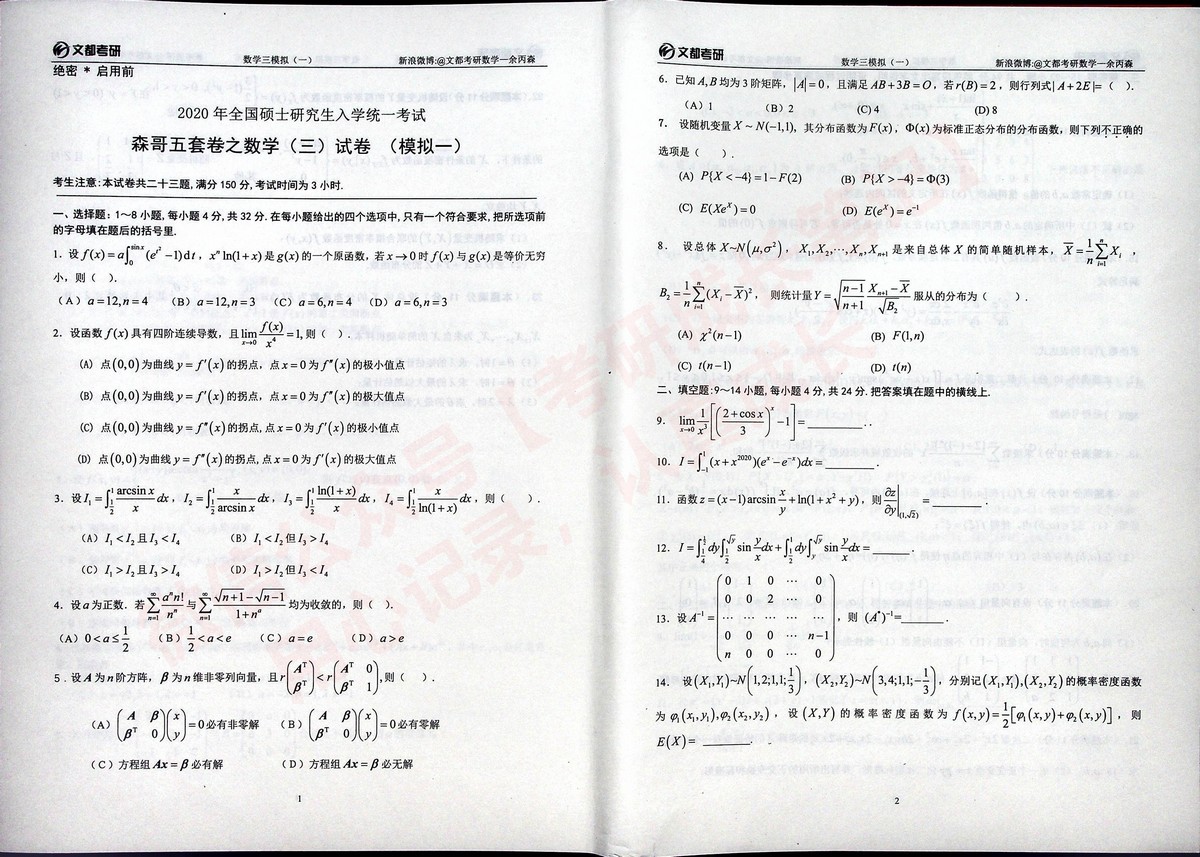 文都考研
数学三模拟（一）
新浪微博:@文都考研数学一余丙森
绝密 * 启用前
2020 年全国硕士研究生入学统一考试
森哥五套卷之数学（三）试卷 （模拟一）
考生注意:本试卷共二十三题,满分 150 分,考试时间为 3 小时.
一、选择题: 1～8 小题,每小题 4 分,共 32 分.在每小题给出的四个选项中,只有一个符合要求,把所选项前
的字母填在题后的括号里.
1. 设 f(x)=a∫_0^{sin x}(e^{t²}−1)dt，xⁿ ln(1+x) 是 g(x) 的一个原函数，若 x→0 时 f(x) 与 g(x) 是等价无穷
小，则（ ）.
（A）a=12,n=4 （B）a=12,n=3 （C）a=6,n=4 （D）a=6,n=3
2. 设函数 f(x) 具有四阶连续导数，且 lim_{x→0} f(x)/x⁴ =1,则（ ）.
(A) 点(0,0)为曲线 y=f′(x) 的拐点，点 x=0 为 f″(x) 的极小值点
(B) 点(0,0)为曲线 y=f′(x) 的拐点，点 x=0 为 f″(x) 的极大值点
(C) 点(0,0)为曲线 y=f″(x) 的拐点,点 x=0 为 f′(x) 的极小值点
(D) 点(0,0)为曲线 y=f″(x) 的拐点,点 x=0 为 f′(x) 的极大值点
3. 设 I₁=∫_{1/2}^1 (arcsin x)/x dx，I₂=∫_{1/2}^1 x/(arcsin x) dx，I₃=∫_{1/2}^1 ln(1+x)/x dx，I₄=∫_{1/2}^1 x/ln(1+x) dx，则（ ）.
(A) I₁<I₂ 且 I₃<I₄ (B) I₁<I₂ 但 I₃>I₄
(C) I₁>I₂ 且 I₃>I₄ (D) I₁>I₂ 但 I₃<I₄
4. 设 a 为正数. 若 ∑_{n=1}^∞ aⁿn!/nⁿ 与 ∑_{n=1}^∞ (√(n+1)−√(n−1))/(1+nᵃ) 均为收敛的，则（ ）.
（A）0<a≤1/2 （B）1/2<a<e （C）a=e （D）a>e
5．设 A 为 n 阶方阵，β 为 n 维非零列向量，且 r(Aᵀ; βᵀ)<r(Aᵀ 0; βᵀ 1),则（ ）.
（A）(A β; βᵀ 0)(x; y)=0 必有非零解 （B）(A β; βᵀ 0)(x; y)=0 必有零解
（C）方程组 Ax=β 必有解 （D）方程组 Ax=β 必无解
1
文都考研
数学三模拟（一）
新浪微博:@文都考研数学一余丙森
6. 已知 A,B 均为 3 阶矩阵，|A|=0，且满足 AB+3B=O，若 r(B)=2，则行列式| A+2E |=（ ）.
(A) 1 (B) 2 (C) 4 (D) 8
7. 设随机变量 X ~ N(−1,1)，其分布函数为 F(x)，Φ(x) 为标准正态分布的分布函数，则下列不正确的
选项是（ ）.
(A) P{X<−4}=1−F(2) (B) P{X>−4}=Φ(3)
(C) E(Xeˣ)=0 (D) E(eˣ)=e⁻¹
8. 设总体 X~N(μ,σ²)，X₁,X₂,⋯,Xₙ,Xₙ₊₁ 是来自总体 X 的简单随机样本，X̄=1/n ∑_{i=1}^n Xᵢ，
B₂=1/n ∑_{i=1}^n (Xᵢ−X̄)²，则统计量 Y=√((n−1)/(n+1)) (Xₙ₊₁−X̄)/√B₂ 服从的分布为（ ）.
(A) χ²(n−1) (B) F(1,n)
(C) t(n−1) (D) t(n)
二、填空题:9～14 小题,每小题 4 分,共 24 分.把答案填在题中的横线上.
9. lim_{x→0} 1/x³ [((2+cos x)/3)ˣ −1]=________.
10. I=∫_{−1}^1 (x+x²⁰²⁰)(eˣ−e⁻ˣ)dx=________.
11. 函数 z=(x−1)arcsin x/y+ln(1+x²+y)，则 ∂z/∂y|_(1,√2) = ________.
12. I=∫_{1/4}^{1/2} dy∫_{1/2}^{√y} sin y/x dx+∫_{1/2}^1 dy∫_y^{√y} sin y/x dx=______.
13. 设 A⁻¹=
0 1 0 ⋯ 0
0 0 2 ⋯ 0
⋯ ⋯ ⋯ ⋯ ⋯
0 0 0 ⋯ n−1
n 0 0 ⋯ 0
，则 (A*)⁻¹=______.
14. 设 (X₁,Y₁)~N(1,2;1,1;1/3)，(X₂,Y₂)~N(3,4;1,1;−1/3)，分别记(X₁,Y₁),(X₂,Y₂) 的概率密度函数
为 φ₁(x₁,y₁),φ₂(x₂,y₂)，设 (X,Y) 的概率密度函数为 f(x,y)=1/2[φ₁(x,y)+φ₂(x,y)]，则
E(X)= ________.
2